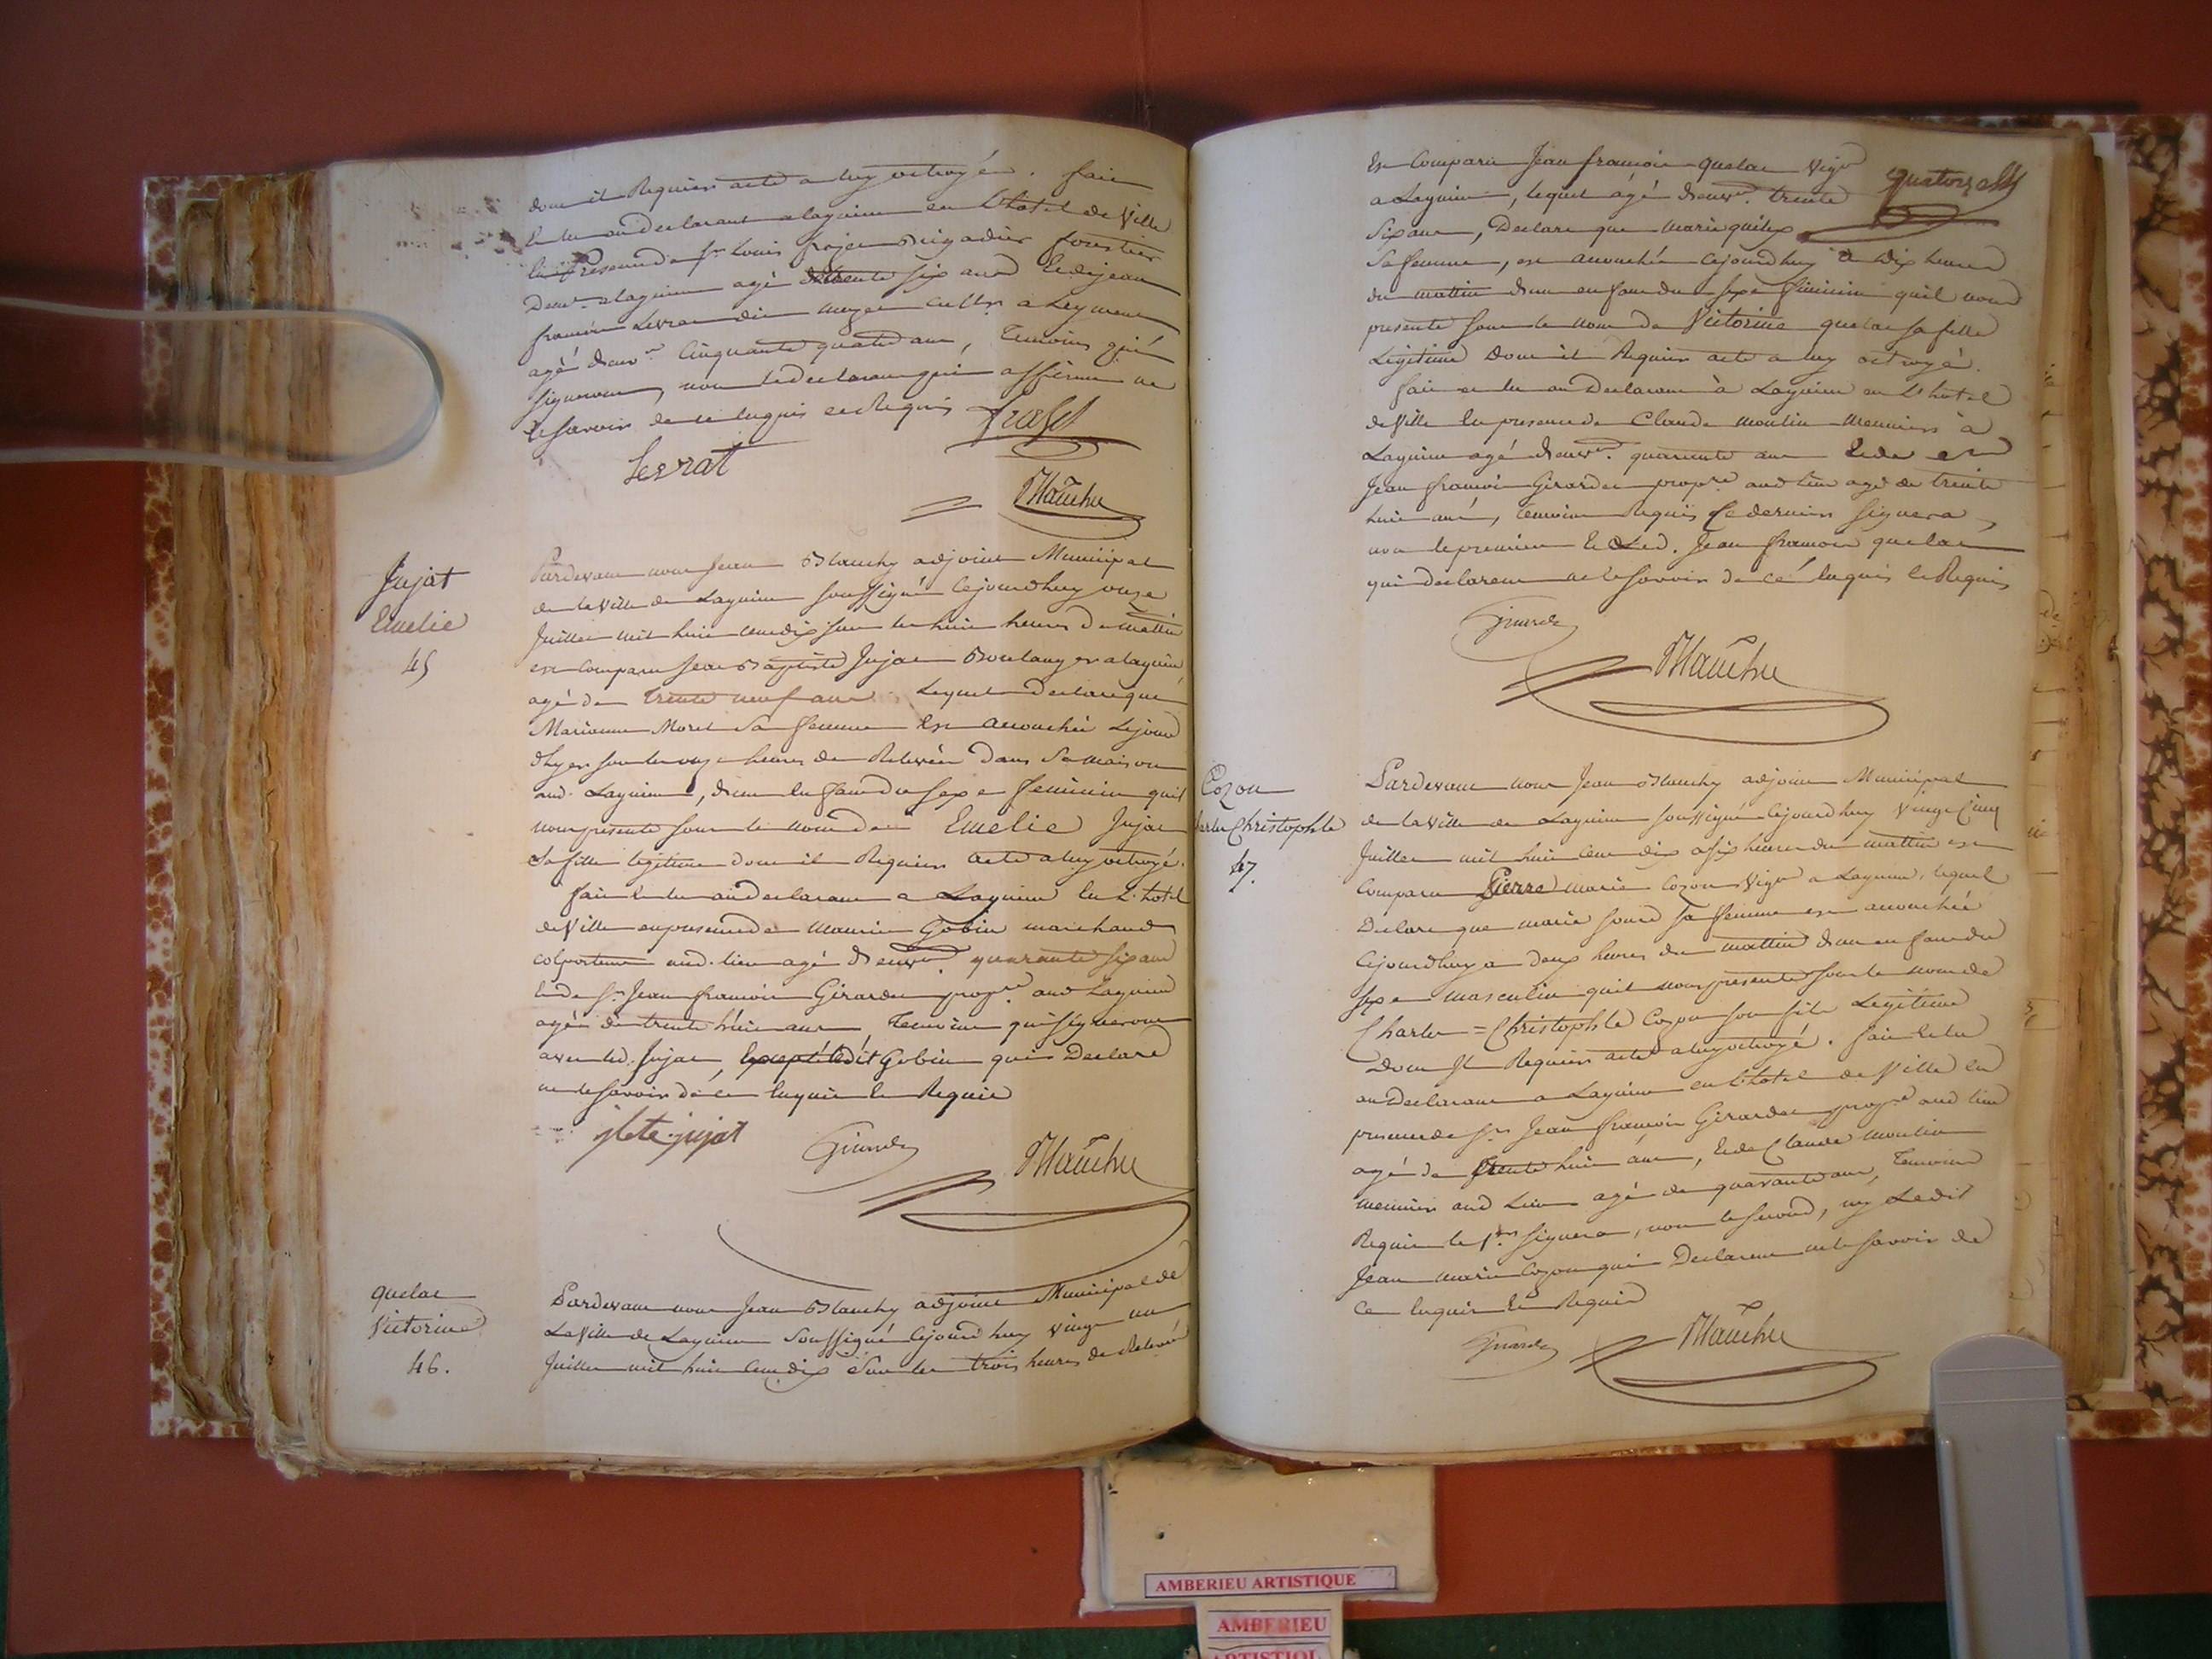 dont il Requiert acte a luy octroyé. fait
Et lu au declarant a lagnieu en L'hotel de Ville
En presence de Sr Louis frajet Brigadier forestier
Demt a lagnieu agé de trente six ans Et de jean
françois Levrat dit Meyer cultr a Leyment
agé d'envon Cinquante quatre ans, Temoins qui
signeront, non le declarant qui affirme ne
le savoir de ce Enquis et Requis
Levrat
Blanchy
Jujat
Emelie
45
Pardevant nous Jean Blanchy adjoint Municipal
de la Ville de Lagnieu soussigné Cejourdhuy onze
Juillet mil huit cent dix sur les huit heures du mattin
est comparu Jean Baptiste Jujat Boulanger a lagnieu
agé de trente neuf ans Lequel declare que
Marianne Morel Sa femme Est accouchée Lejour
d'hyer sur les onze heures de Relevée Dans Sa maison
aud. Lagnieu, d'un Enfant du sexe feminin qu'il
nous presente sous le nom de Emelie Jujat
Sa fille legitime dont il Requiert acte a luy octroyé.
fait Et lu au declarant a Lagnieu En L'hotel
de Ville en presence de Maurice Gobin marchand
colporteur aud. lieu agé d'environ quarante six ans
Et de Sr Jean françois Girardet propre aud Lagnieu
agé de trente huit ans, Temoins qui signeront
avec led. Jujat, Excepté ledit Gobin qui Declare
ne le savoir de ce Enquis Et Requis
jbte jujat
Girardet
Blanchy
quelat
Victorine
46.
Pardevant nous Jean Blanchy adjoint Municipal de
La Ville de Lagnieu Soussigné Cejourd'huy vingt un
Juillet mil huit cent dix Sur les trois heures de Relevée
Est Comparu Jean françois quelat vigon
a Lagnieu, lequel âgé d'envon trente
Six ans, Declare que marie
Sa femme, est accouchée cejourdhuy a dix heures
du mattin d'un enfant du sexe féminin qu'il nous
presente sous le nom de Victorine quelat sa fille
Légitime Dont il Requiert acte a luy octroyé.
fait et lu au Declarant à Lagnieu en L'hotel
de Ville En presence de Claude moulin Meunier à
Lagnieu agé d'environ quarante ans Et de
Jean françois Girardet propre aud lieu agé de trente
huit ans, temoins Requis Ce dernier signera,
non le premier Et Led. Jean françois quelat
qui declarent ne le savoir de ce Enquis Et Requis
Girardet
Blanchy
Cozon
Charles Christophle
47.
Pardevant nous Jean Blanchy adjoint Municipal
de la Ville de Lagnieu soussigné Cejourd'huy vingt Cinq
Juillet mil huit cent dix a six heures du mattin est
Comparu Pierre marie Cozon vigon a Lagnieu, lequel
Declare que marie sa femme est accouchée
Cejourdhuy a deux heures du mattin d'un enfant du
sexe masculin qu'il nous presente sous le nom de
Charles = Christophle Cozon son fils Legitime
Dont Il Requiert acte a luy octroyé. fait Et lu
au Declarant a Lagnieu en L'hotel de Ville En
presence de Sr Jean françois Girardet propre aud lieu
agé de trente huit ans, Et de Claude moulin
meunier aud Lieu agé de quarante ans, Temoins
Requis le 1er signera, non le second, ny Ledit
Jean marie Cozon qui Declarent ne le savoir de
Ce Enquis Et Requis
Girardet
Blanchy
AMBERIEU ARTISTIQUE
AMBERIEU
ARTISTIQU